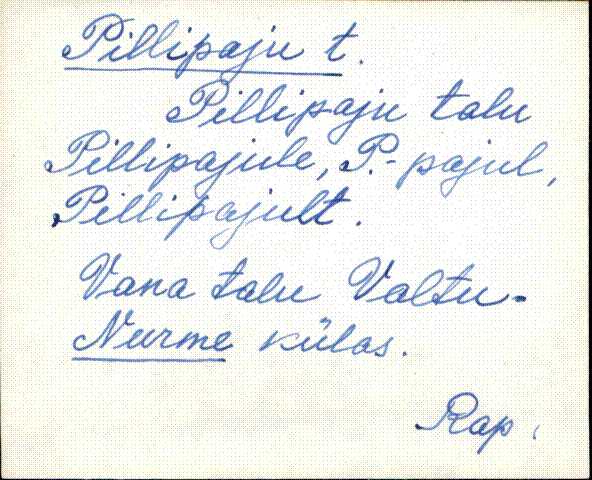 Pillipaju t.
Pillipaju talu
Pillipajule, P.-pajul,
Pillipajult.
Vana talu Valtu-
Nurme külas.
Rap.